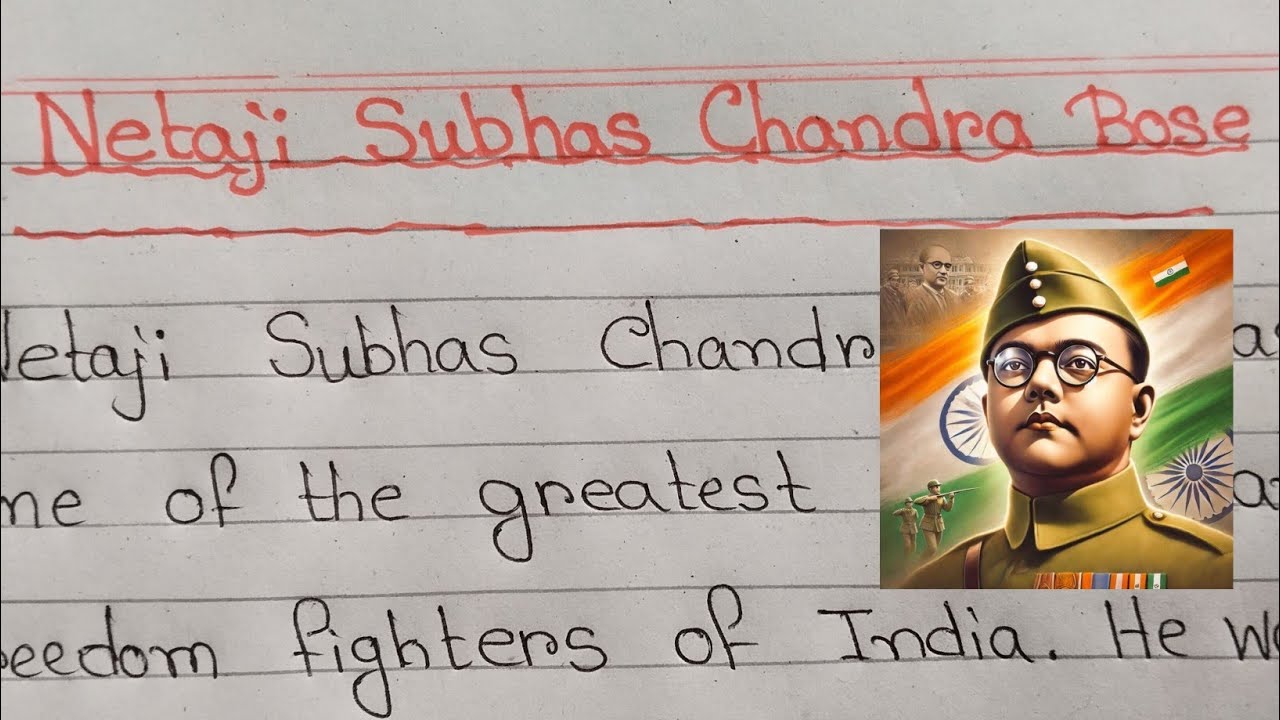 Netaji Subhas Chandra Bose
Netaji Subhas Chandr
of the greatest
eedom fighters of India. He